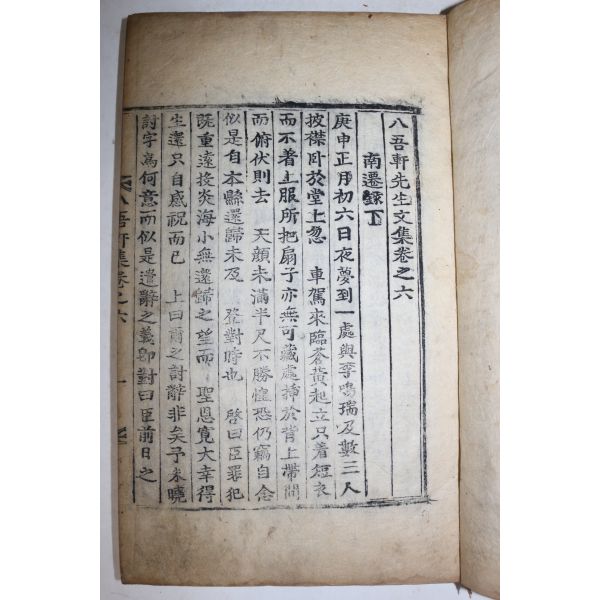 八吾軒先生文集卷之六
南遷錄下
庚申正月初六日夜夢到一處與李鳴瑞及數三人
披襟臥於堂上忽 車駕來臨蒼黃起立只着短衣
而不着上服所把扇子亦無可藏處揷於背上帶間
而俯伏則去 天顔未滿半尺不勝惶恐仍竊自念
似是自本縣還歸未及 登對時也 啓曰臣罪犯
旣重遠投炎海小無還歸之望而 聖恩寬大幸得
生還只自感祝而已 上曰爾之討辭非矣予未曉
討字爲何意而似是遣辭之義卽對曰臣前日之
八吾軒集卷之六 一